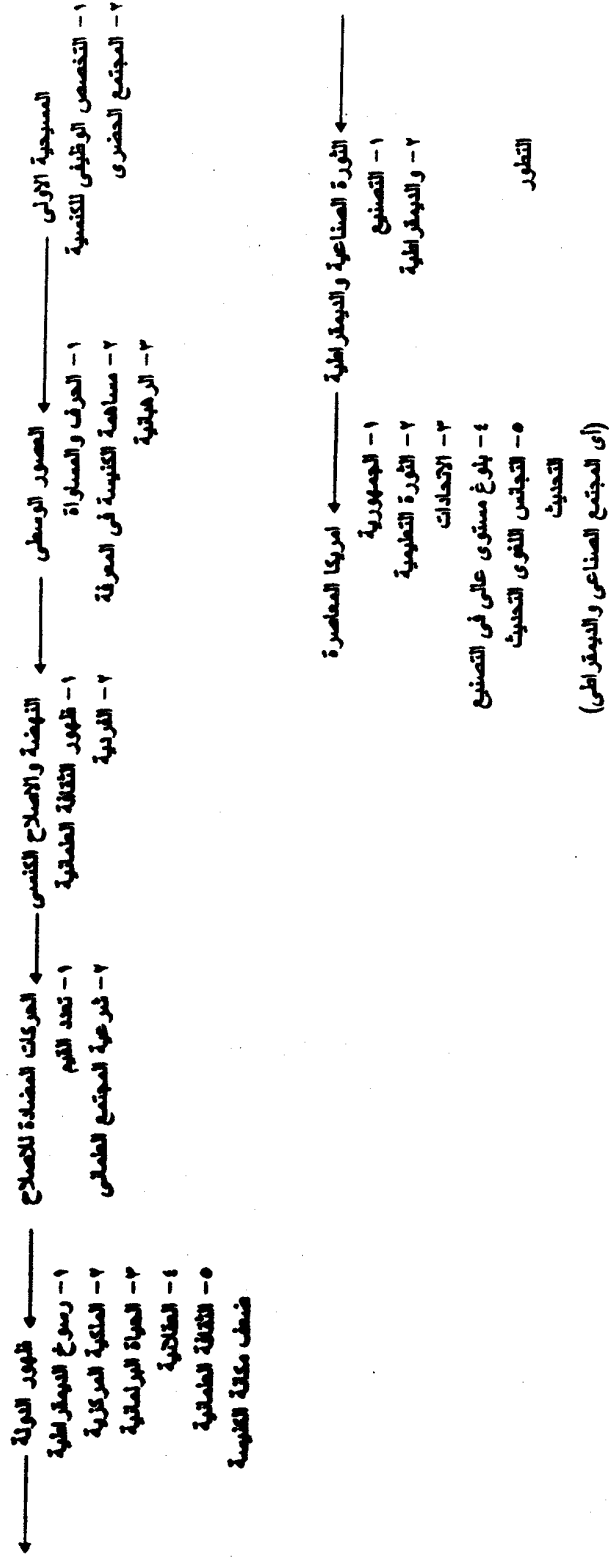 المسيحية الاولى
١- التخصص الوظيفى للكنسية
٢- المجتمع الحضرى
العصور الوسطى
١- الحرف والمساواة
٢- مساهمة الكنيسة فى المعرفة
٣- الرهبانية
النهضة والاصلاح الكنسى
١- ظهور الثقافة العلمانية
٢- الفردية
الحركات المضادة للاصلاح
١- تعدد القيم
٢- شرعية المجتمع العلمانى
ظهور الدولة
١- رسوخ الديمقراطية
٢- الملكية المركزية
٣- الحياة البرلمانية
٤- العقلانية
٥- الثقافة العلمانية
ضعف مكانة الكنيسة
الثورة الصناعية والديمقراطية
١- التصنيع
٢- والديمقراطية
امريكا المعاصرة
١- الجمهورية
٢- الثورة التعليمية
٣- الاتحادات
٤- بلوغ مستوى عالى فى التصنيع
٥- التجانس اللغوى التحديث
التحديث
(أى المجتمع الصناعى والديمقراطى)
التطور